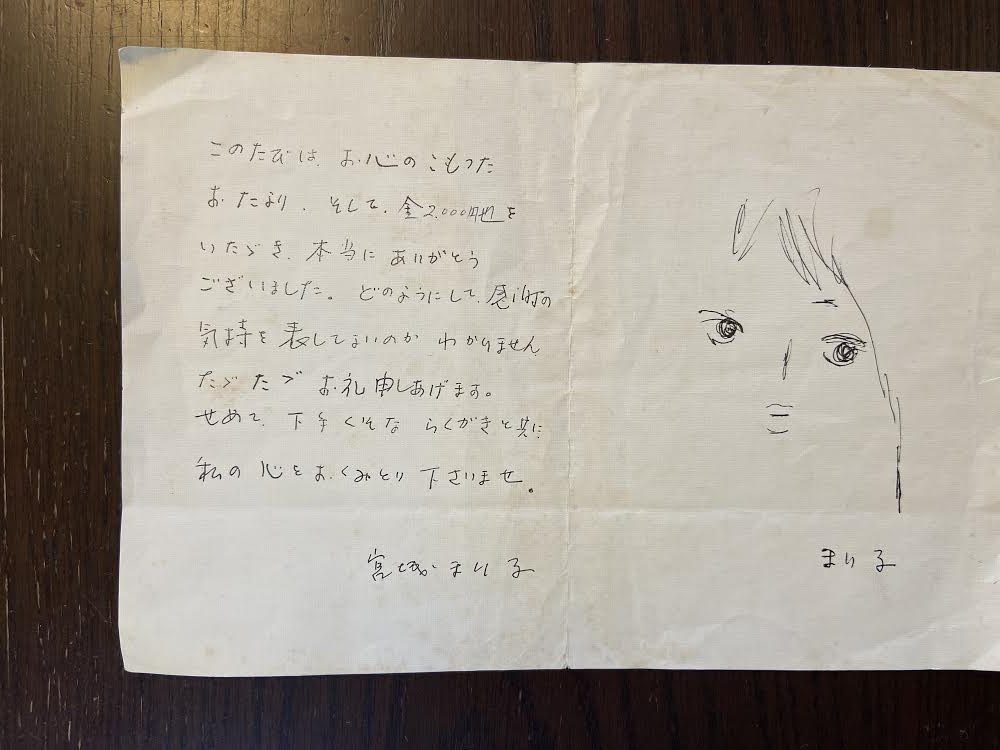 このたびは、お心のこもつた
おたより、そして、金2,000円也を
いたゞき、本当にありがとう
ございました。どのようにして、感謝の
気持を表してよいのかわかりません
たゞたゞお礼申しあげます。
せめて、下手くそならくがきと共に
私の心をおくみとり下さいませ。
宮城まり子
まり子